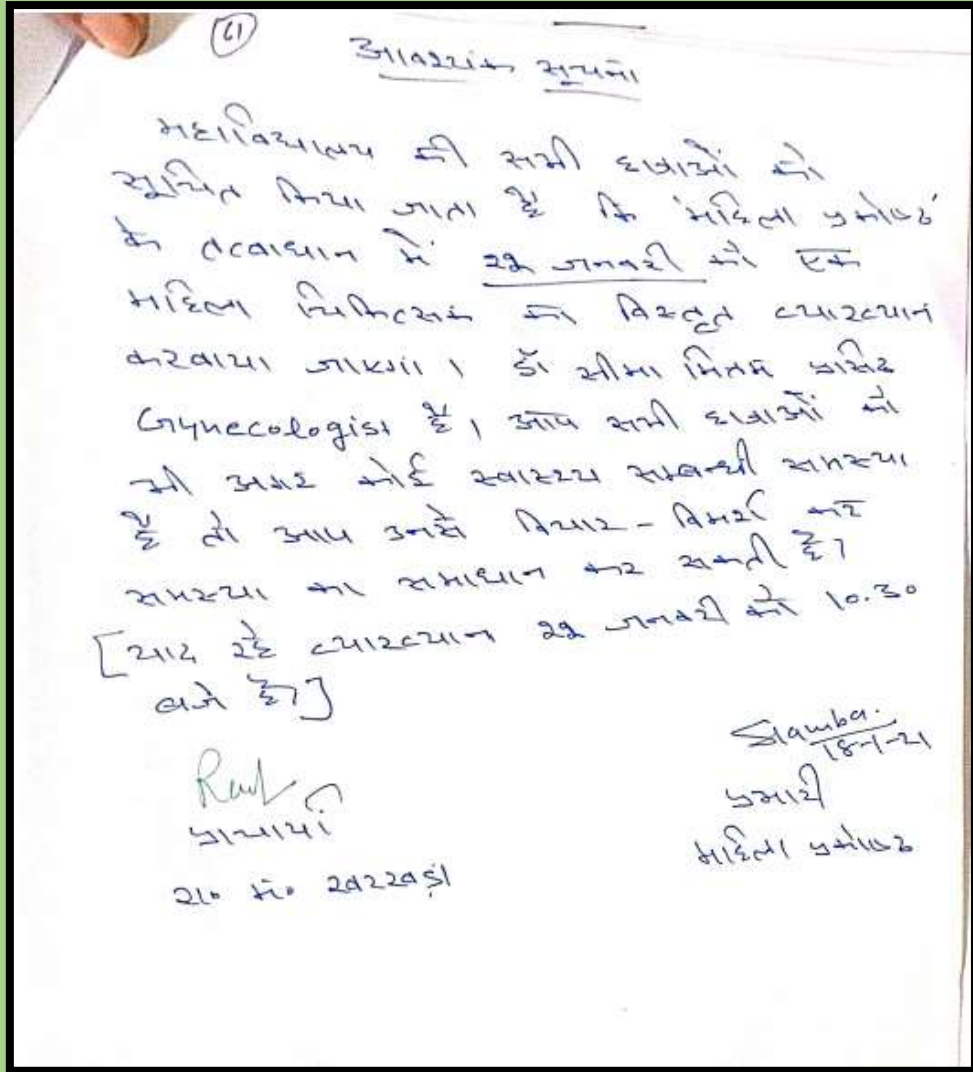 61
आवश्यक सूचना
महाविद्यालय की सभी छात्राओं को
सूचित किया जाता है कि 'महिला प्रकोष्ठ'
के तत्वाधान में 22 जनवरी को एक
महिला चिकित्सक का विस्तृत व्याख्यान
करवाया जाएगा । डॉ सीमा प्रसिद्ध
Gynecologist है। आप सभी छात्राओं को
भी अगर कोई स्वास्थ्य सम्बन्धी समस्या
है तो आप उनसे विचार-विमर्श कर
समस्या का समाधान कर सकती है।
[याद रहे व्याख्यान 22 जनवरी को 10.30
बजे है।]
18-1-21
प्राचार्या
प्रभारी
रा० म० खरखड़ा
महिला प्रकोष्ठ